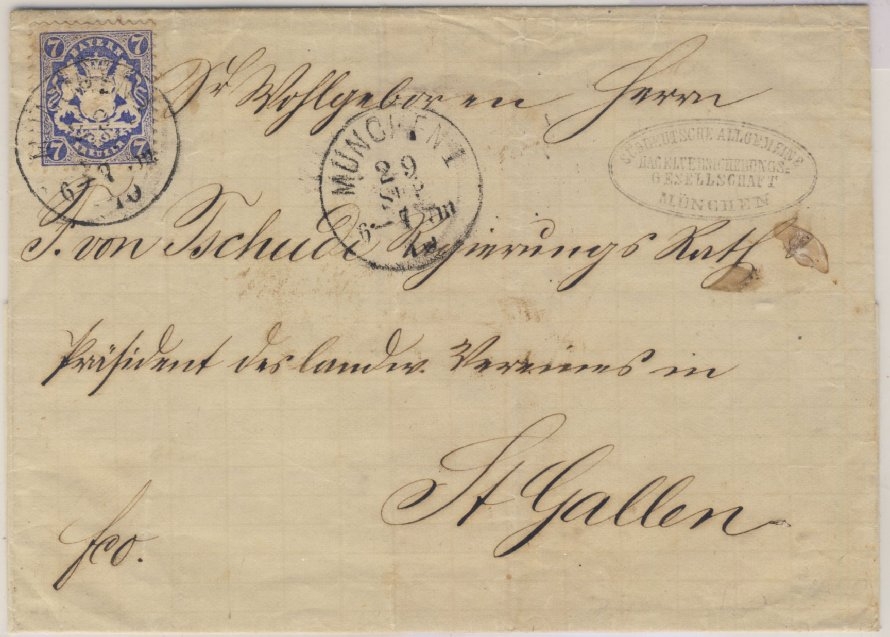 7 BAYERN 7
7 7
Sr Wohlgeboren Herrn
MÜNCHEN I
29
6-7 Vm
6-7
ALLGEMEINE
HAGELVERSICHERUNGS-
GESELLSCHAFT
MÜNCHEN
F. von Tschudi Regierungs Rath
Präsident des landw. Vereines in
St Gallen
fco.